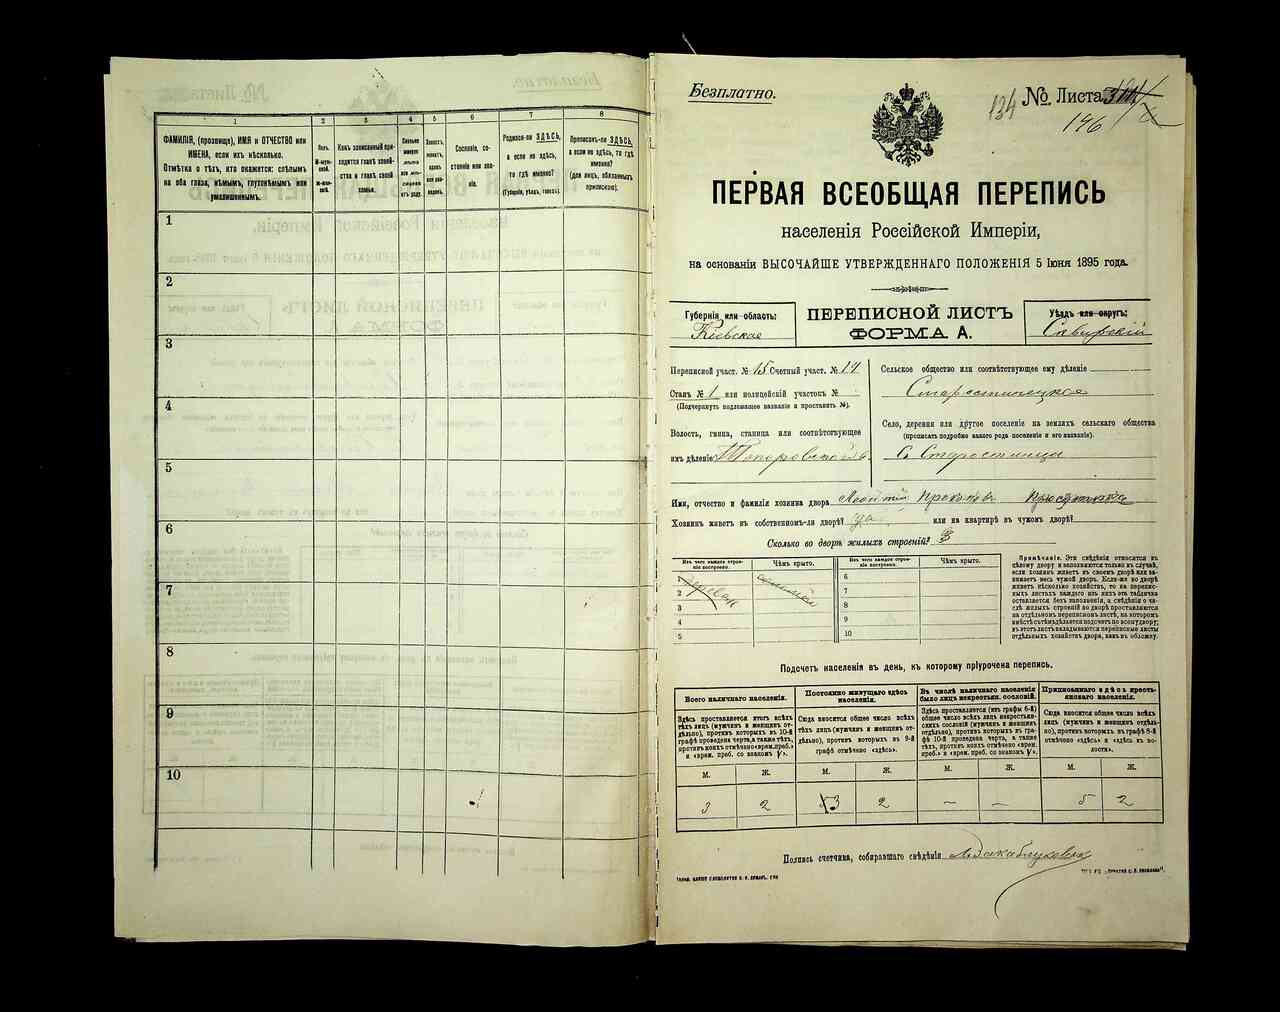 1
2
3
4
5
6
7
8
ФАМИЛІЯ, (прозвище), ИМЯ и ОТЧЕСТВО или
ИМЕНА, если ихъ нѣсколько.
Отмѣтка о тѣхъ, кто окажется: слѣпымъ
на оба глаза, нѣмымъ, глухонѣмымъ или
умалишеннымъ.
Полъ.
Какъ записанный при-
ходится главѣ хозяй-
ства и главѣ своей
семьи.
Сословіе, со-
стояніе или зва-
ніе.
Родился-ли ЗДѢСЬ,
а если не здѣсь,
то гдѣ именно?
(Губернія, уѣздъ, городъ).
Приписанъ-ли ЗДѢСЬ,
а если не здѣсь, то гдѣ
именно?
(для лицъ, обязанныхъ
припискою).
1
2
3
4
5
6
7
8
9
10
Безплатно.
134 № Листа
146
ПЕРВАЯ ВСЕОБЩАЯ ПЕРЕПИСЬ
населенія Россійской Имперіи,
на основаніи ВЫСОЧАЙШЕ УТВЕРЖДЕННАГО ПОЛОЖЕНІЯ 5 Іюня 1895 года.
Губернія или область:
Кіевская
ПЕРЕПИСНОЙ ЛИСТЪ
ФОРМА А.
Уѣздъ или округъ:
Сквирскій
Переписной участ. № 15 Счетный участ. № 14
Станъ № 1 или полицейскій участокъ №
(Подчеркнуть подлежащее названіе и проставить №).
Волость, гмина, станица или соотвѣтствующее
имъ дѣленіе Топоровская
Сельское общество или соотвѣтствующее ему дѣленіе
Старостинецкое
Село, деревня или другое поселеніе на земляхъ сельскаго общества
(прописать подробно какого рода поселеніе и его названіе).
С. Старостинцы
Имя, отчество и фамилія хозяина двора
Хозяинъ живетъ въ собственномъ-ли дворѣ? да или на квартирѣ въ чужомъ дворѣ?
Сколько во дворѣ жилыхъ строеній? 3
Изъ чего каждое строе-
ніе построено.
Чѣмъ крыто.
Изъ чего каждое строе-
ніе построено.
Чѣмъ крыто.
2
3
4
5
6
7
8
9
10
Примѣчаніе. Эти свѣдѣнія относятся къ
цѣлому двору и заполняются только въ случаѣ,
если хозяинъ живетъ въ своемъ дворѣ или за-
нимаетъ весь чужой дворъ. Если-же во дворѣ
живетъ нѣсколько хозяйствъ, то на перепис-
ныхъ листахъ каждаго изъ нихъ эта табличка
оставляется безъ заполненія, а свѣдѣнія о чи-
слѣ жилыхъ строеній во дворѣ проставляются
на отдѣльномъ переписномъ листѣ, на которомъ
вмѣстѣ съ тѣмъ дѣлается подсчетъ по всему двору;
въ этотъ листъ вкладываются переписные листы
отдѣльныхъ хозяйствъ двора, какъ въ обложку.
Подсчетъ населенія въ день, къ которому пріурочена перепись.
Всего наличнаго населенія.
Постоянно живущаго здѣсь
населенія.
Въ числѣ наличнаго населенія
было лицъ некрестьян. сословій.
Приписаннаго здѣсь кресть-
янскаго населенія.
Здѣсь проставляется итогъ всѣхъ
лицъ (мужчинъ и женщинъ от-
дѣльно), противъ которыхъ въ 10-й
графѣ проведена черта, а также тѣхъ,
противъ коихъ отмѣчено «врем. преб.»
и «врем. преб. со знакомъ V».
Сюда вносится общее число всѣхъ
тѣхъ лицъ (мужчинъ и женщинъ от-
дѣльно), противъ которыхъ въ 9-й
графѣ отмѣчено «здѣсь».
Здѣсь проставляется (изъ графы 6-й)
общее число всѣхъ лицъ некрестьян-
скихъ сословій (мужчинъ и женщинъ
отдѣльно), противъ которыхъ въ гра-
фѣ 10-й проведена черта, а также
тѣхъ, противъ коихъ отмѣчено «врем.
преб.» и «врем. преб. со знакомъ V».
Сюда вносится общее число всѣхъ
лицъ (мужчинъ и женщинъ отдѣль-
но), противъ которыхъ въ графѣ 8-й
отмѣчено «здѣсь» и «здѣсь въ во-
лости».
М. Ж. М. Ж. М. Ж. М. Ж.
3 2 3 2 — — 5 2
Подпись счетчика, собиравшаго свѣдѣнія